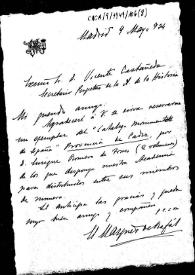 CAI CA/9/7949/46(2)
Madrid 9 Mayo 934
Excmo Sr. D. Vicente Castañeda
Secretario Perpetuo de la A. de la Historia
Mi querido amigo:
Agradeceré a V. se sirva reservarme
un ejemplar del "Catálogo monumental
de España" Provincia de Cadiz, por
D. Enrique Romero de Torres (2 volumenes)
de los que dispone nuestra Academia
para distribuirlos entre sus miembros
de número.
Le anticipa las gracias y queda
suyo buen amigo y compañero
El Marqués de Rafal